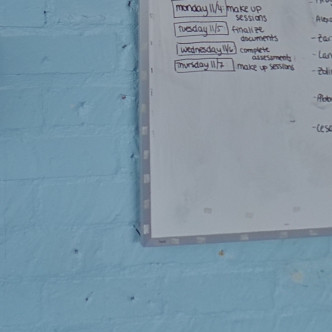 monday 11/4 make up
sessions
Tuesday 11/5 finalize
documents
Wednesday 11/6 complete
assessments:
Thursday 11/7 make up sessions